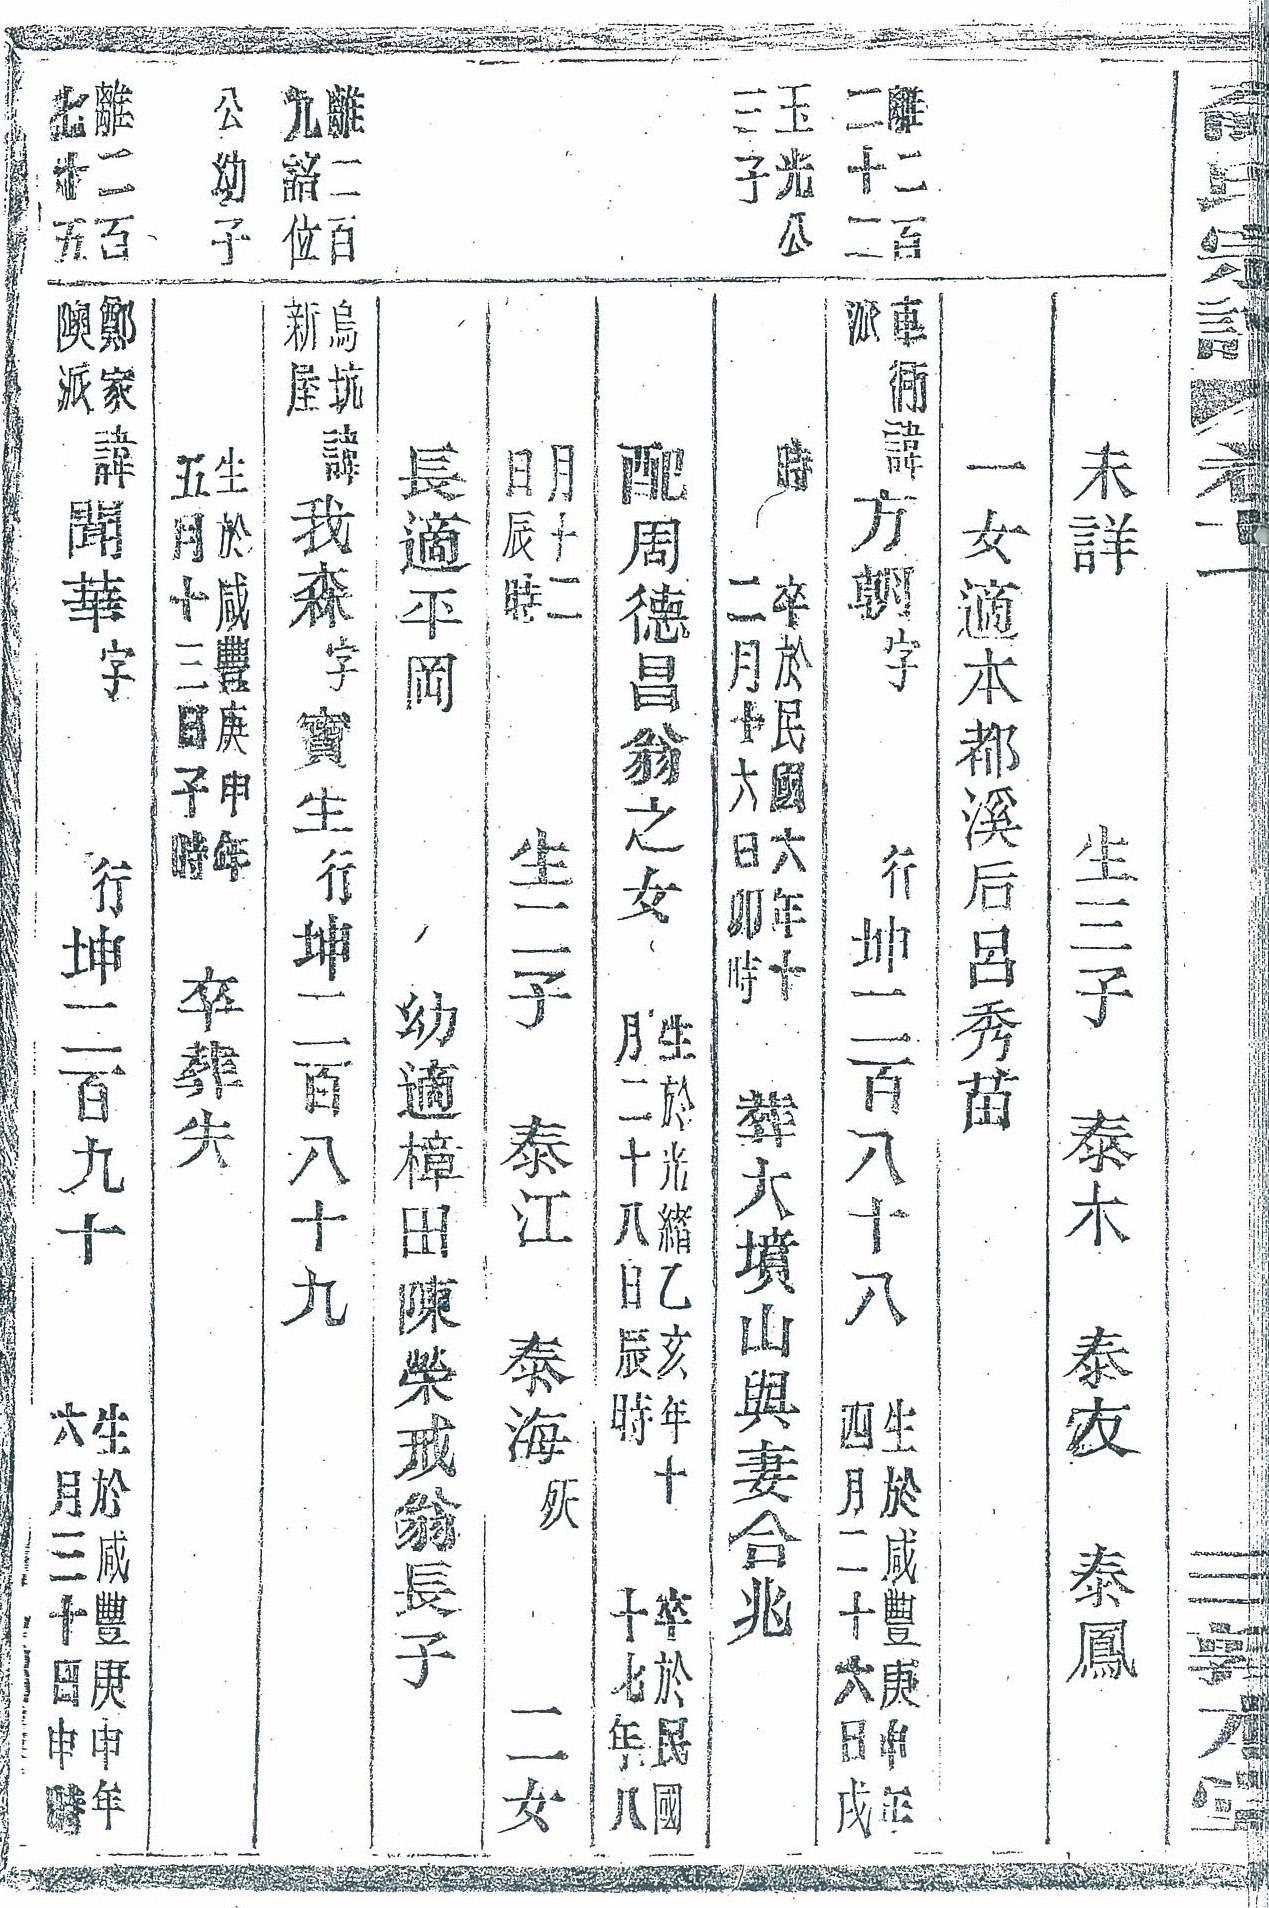 俞氏宗譜 卷二 三 敦本堂
未詳 生三子 泰木 泰友 泰鳳
一女適本都溪后呂秀苗
離二百
二十二
車衕
派
諱方朝字 行坤二百八十八 生於咸豐庚申年
四月二十六日戌
玉光公
三子
時 卒於民國六年十
二月十六日卯時 葬大墳山與妻合兆
配周德昌翁之女 生於光緒乙亥年十
月二十八日辰時 卒於民國
十七年八
月十二
日辰時 生二子 泰江 泰海殀 二女
長適平岡 幼適樟田陳榮戒翁長子
離二百
九諮位
烏坑
新屋
諱我森字寶生行坤二百八十九
公幼子
生於咸豐庚申年
五月十三日子時 卒葬失
離二百
七十五
鄭家
隩派
諱聞華字 行坤二百九十 生於咸豐庚申年
六月三十日申時